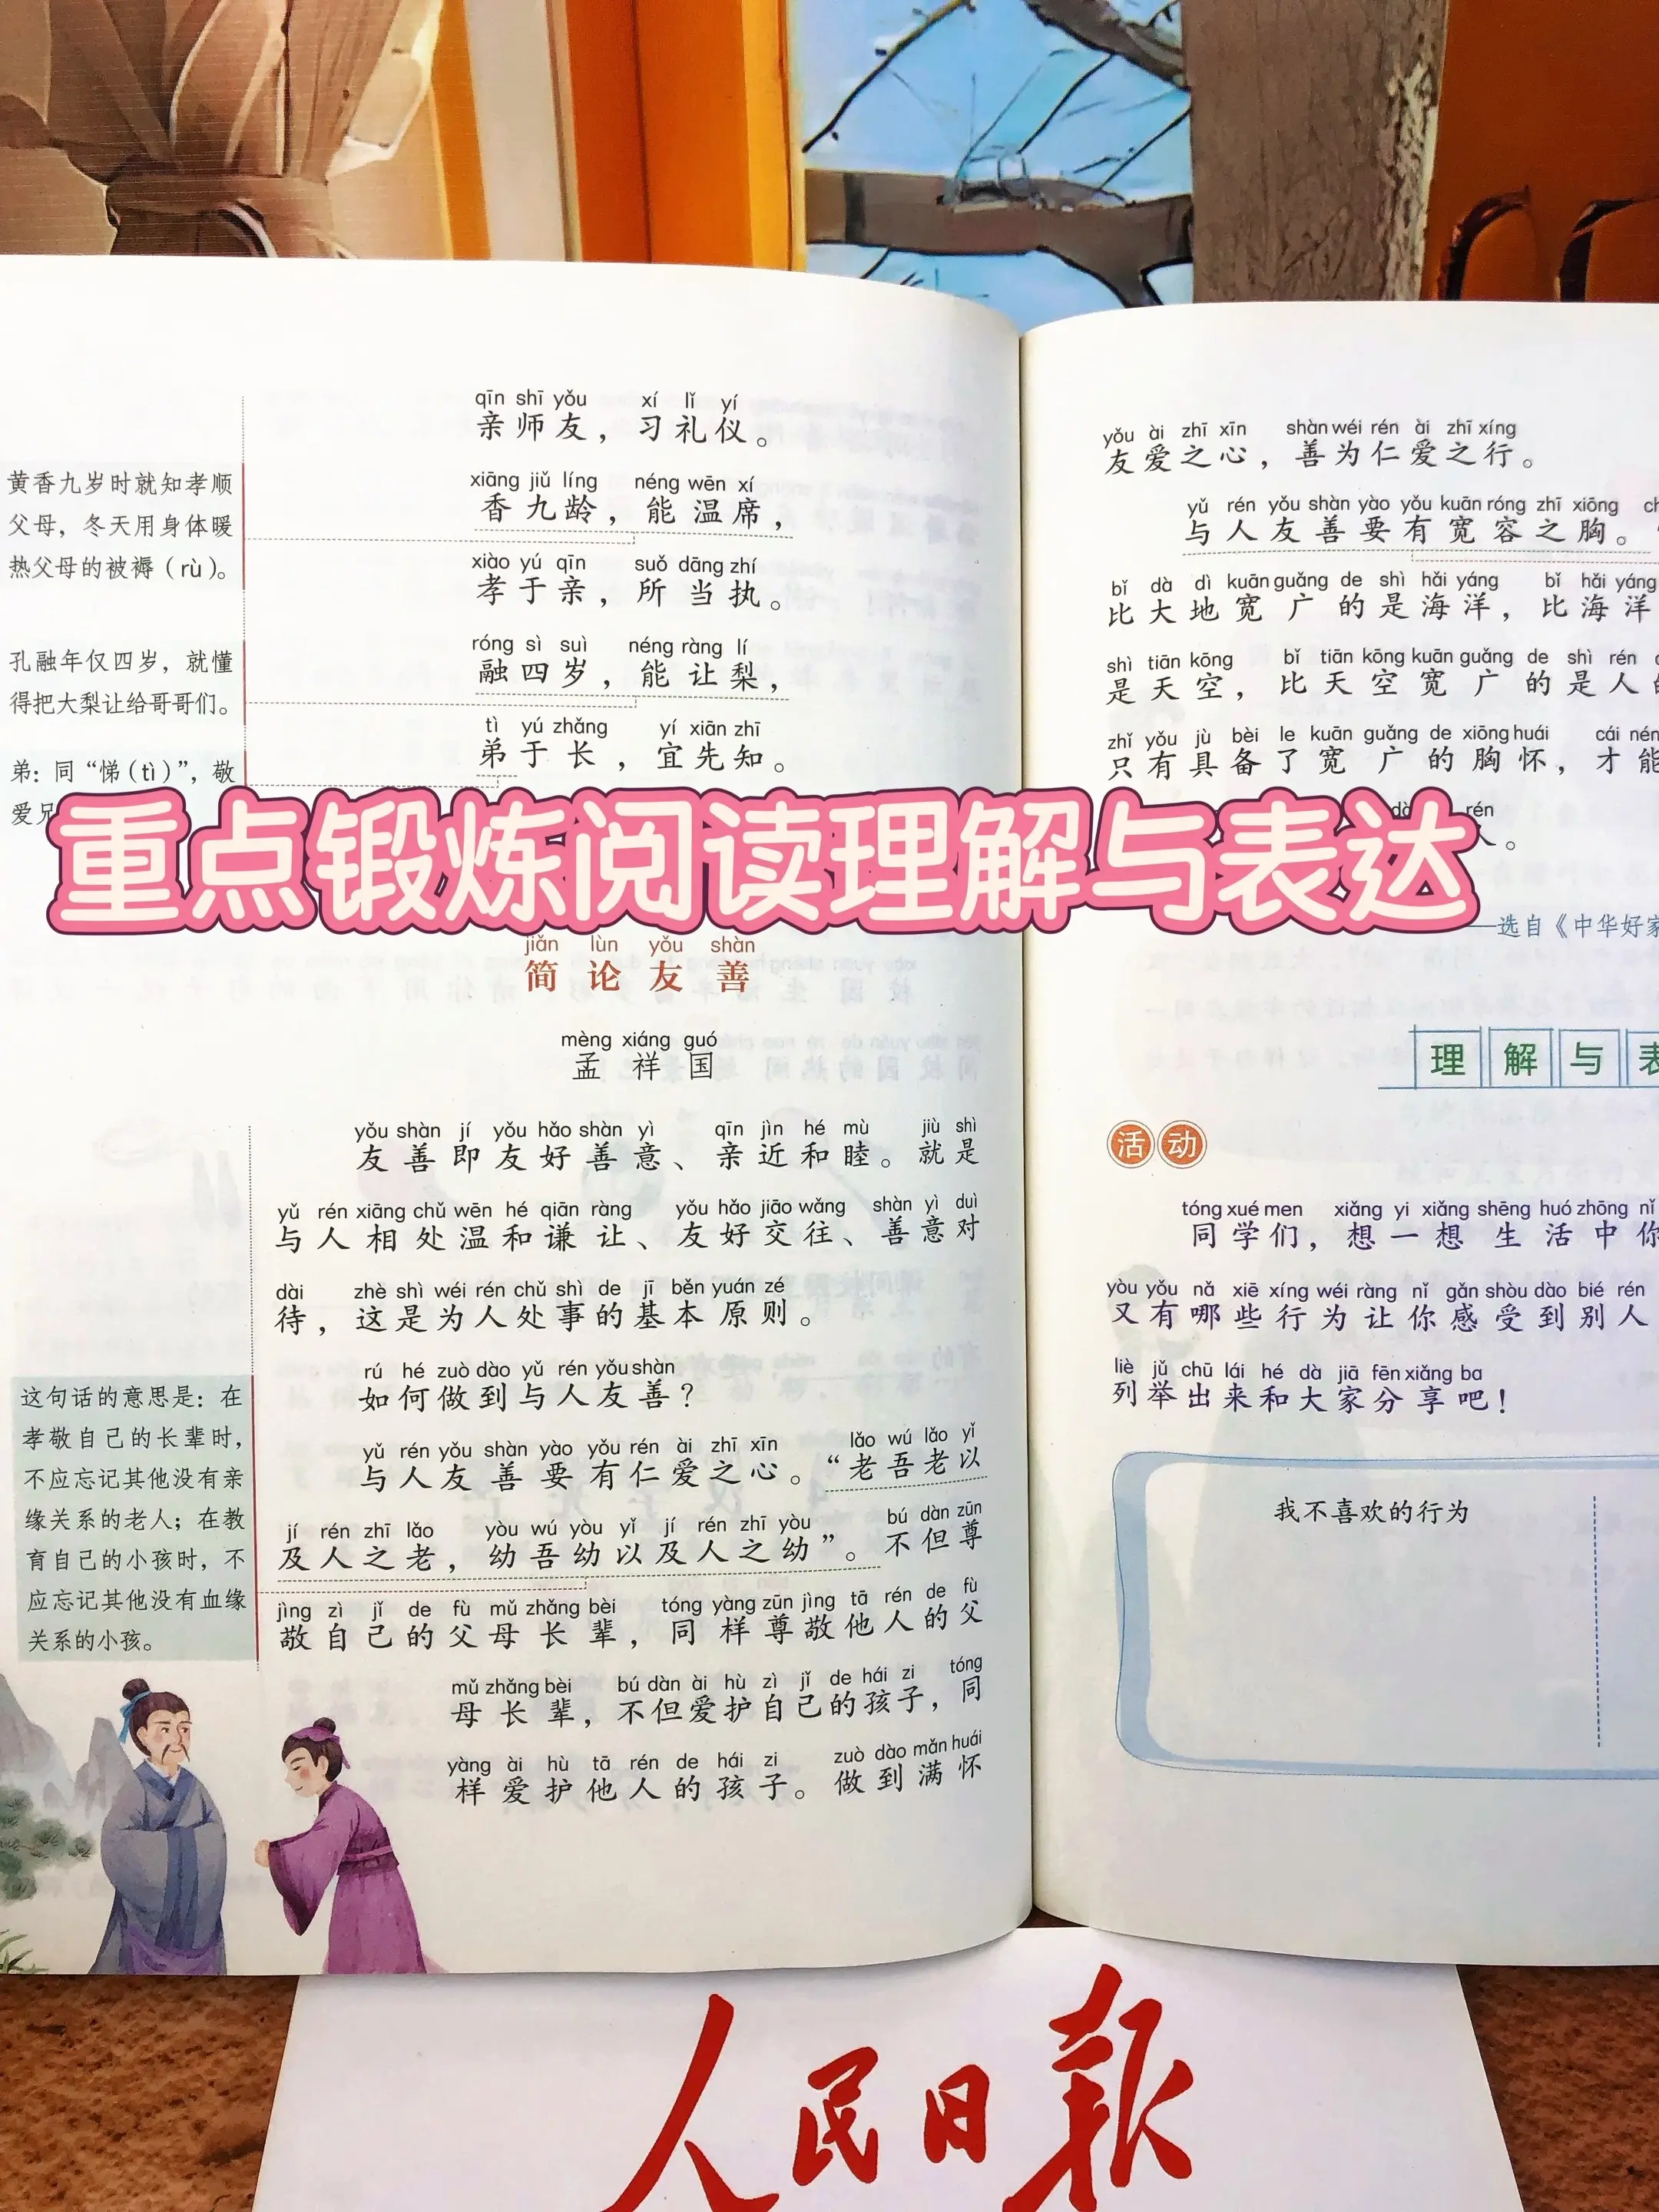 qīn shī yǒu xí lǐ yí
亲师友，习礼仪。
xiāng jiǔ líng néng wēn xí
香九龄，能温席，
xiào yú qīn suǒ dāng zhí
孝于亲，所当执。
róng sì suì néng ràng lí
融四岁，能让梨，
tì yú zhǎng yí xiān zhī
弟于长，宜先知。
黄香九岁时就知孝顺
父母，冬天用身体暖
热父母的被褥（rù）。
孔融年仅四岁，就懂
得把大梨让给哥哥们。
弟：同“悌（tì）”，敬
爱兄
重点锻炼阅读理解与表达
jiǎn lùn yǒu shàn
简论友善
mèng xiáng guó
孟祥国
yǒu shàn jí yǒu hǎo shàn yì qīn jìn hé mù jiù shì
友善即友好善意、亲近和睦。就是
yǔ rén xiāng chǔ wēn hé qiān ràng yǒu hǎo jiāo wǎng shàn yì duì
与人相处温和谦让、友好交往、善意对
dài zhè shì wéi rén chǔ shì de jī běn yuán zé
待，这是为人处事的基本原则。
rú hé zuò dào yǔ rén yǒu shàn
如何做到与人友善？
yǔ rén yǒu shàn yào yǒu rén ài zhī xīn lǎo wú lǎo yǐ
与人友善要有仁爱之心。“老吾老以
jí rén zhī lǎo yòu wú yòu yǐ jí rén zhī yòu bú dàn zūn
及人之老，幼吾幼以及人之幼”。不但尊
jìng zì jǐ de fù mǔ zhǎng bèi tóng yàng zūn jìng tā rén de fù
敬自己的父母长辈，同样尊敬他人的父
mǔ zhǎng bèi bú dàn ài hù zì jǐ de hái zi tóng
母长辈，不但爱护自己的孩子，同
yàng ài hù tā rén de hái zi zuò dào mǎn huái
样爱护他人的孩子。做到满怀
这句话的意思是：在
孝敬自己的长辈时，
不应忘记其他没有亲
缘关系的老人；在教
育自己的小孩时，不
应忘记其他没有血缘
关系的小孩。
yǒu ài zhī xīn shàn wéi rén ài zhī xíng
友爱之心，善为仁爱之行。
yǔ rén yǒu shàn yào yǒu kuān róng zhī xiōng
与人友善要有宽容之胸。
bǐ dà dì kuān guǎng de shì hǎi yáng bǐ hǎi yáng
比大地宽广的是海洋，比海洋
shì tiān kōng bǐ tiān kōng kuān guǎng de shì rén
是天空，比天空宽广的是人
zhǐ yǒu jù bèi le kuān guǎng de xiōng huái cái néng
只有具备了宽广的胸怀，才能
rén
人。
——选自《中华好家
理解与表
活动
tóng xué men xiǎng yi xiǎng shēng huó zhōng nǐ
同学们，想一想生活中你
yòu yǒu nǎ xiē xíng wéi ràng nǐ gǎn shòu dào bié rén
又有哪些行为让你感受到别人
liè jǔ chū lái hé dà jiā fēn xiǎng ba
列举出来和大家分享吧！
我不喜欢的行为
人民日報